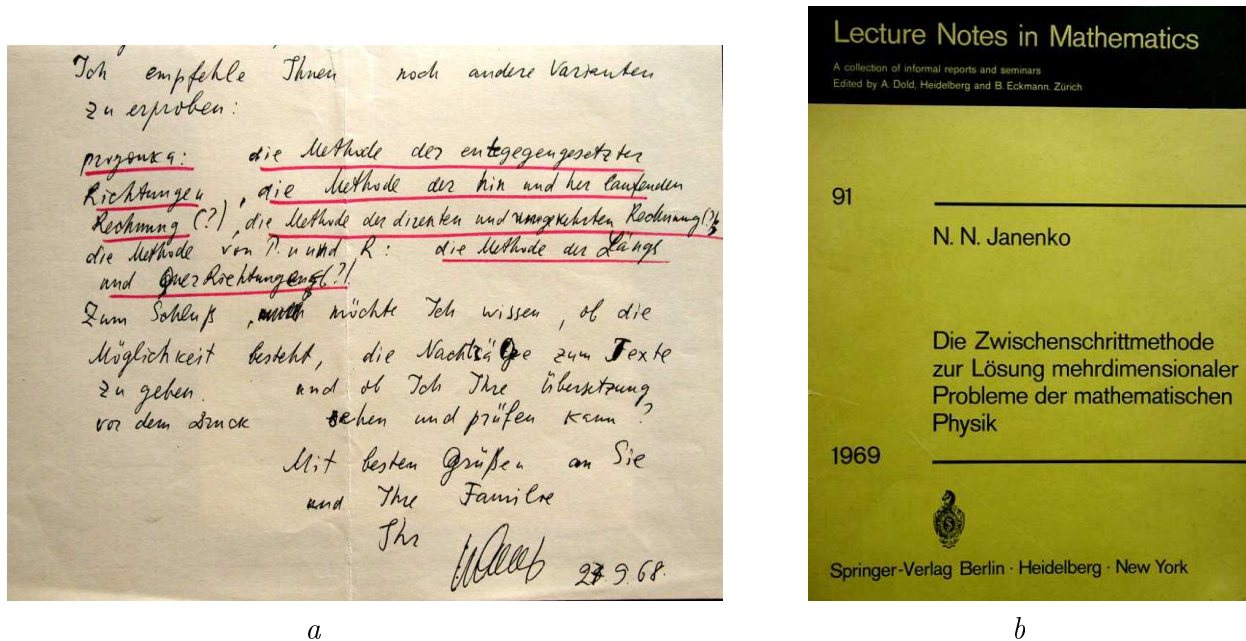 Ich empfehle Ihnen noch andere Varianten
zu erproben:
progonka: die Methode der entgegengesetzter
Richtungen, die Methode der hin und her laufenden
Rechnung (?), die Methode der direkten und umgekehrten Rechnung(?),
die Methode von P. u und R: die Methode der Längs
und Quer Richtungen(?)!
Zum Schluß möchte Ich wissen, ob die
Möglichkeit besteht, die Nachträge zum Texte
zu geben und ob Ich Ihre Übersetzung
vor dem Druck sehen und prüfen kann?
Mit besten Grüßen an Sie
und Ihre Familie
Ihr
9.68.
a
Lecture Notes in Mathematics
A collection of informal reports and seminars
Edited by A. Dold, Heidelberg and B. Eckmann, Zürich
91
N. N. Janenko
Die Zwischenschrittmethode
zur Lösung mehrdimensionaler
Probleme der mathematischen
Physik
1969
Springer-Verlag Berlin · Heidelberg · New York
b